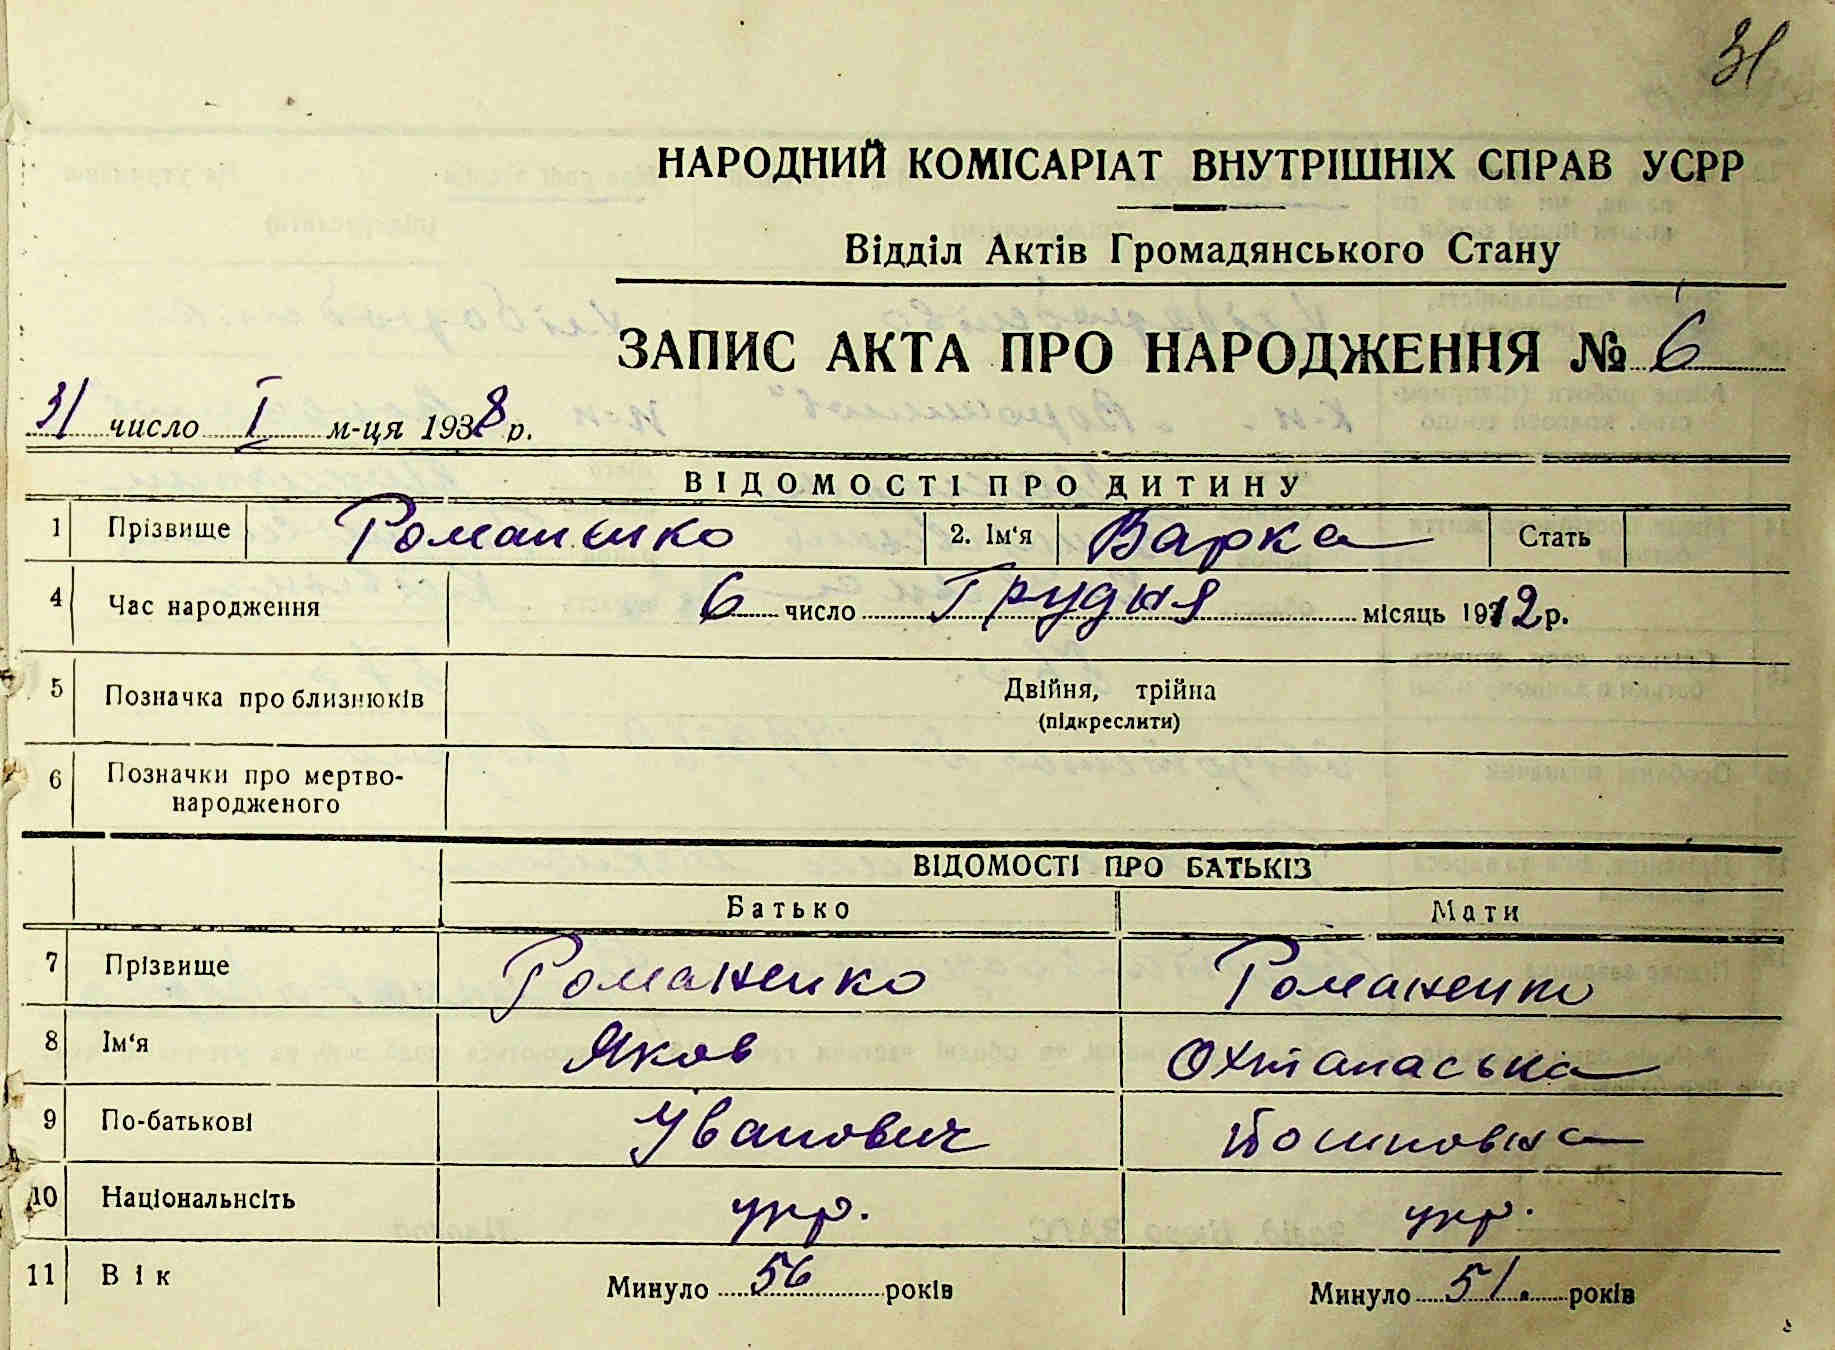 31
НАРОДНИЙ КОМІСАРІАТ ВНУТРІШНІХ СПРАВ УСРР
Відділ Актів Громадянського Стану
ЗАПИС АКТА ПРО НАРОДЖЕННЯ № 6
31 число I м-ця 1938 р.
ВІДОМОСТІ ПРО ДИТИНУ
1 Прізвище Романенко 2. Ім'я Варка Стать
4 Час народження 6 число Грудня місяць 1912 р.
5 Позначка про близнюків Двійня, трійна
(підкреслити)
6 Позначки про мертво-
народженого
ВІДОМОСТІ ПРО БАТЬКІЗ
Батько Мати
7 Прізвище Романенко Романенко
8 Ім'я Яков Охтанаська
9 По-батькові Іванович
10 Національнсіть укр. укр.
11 Вік Минуло 56 років Минуло 51. років